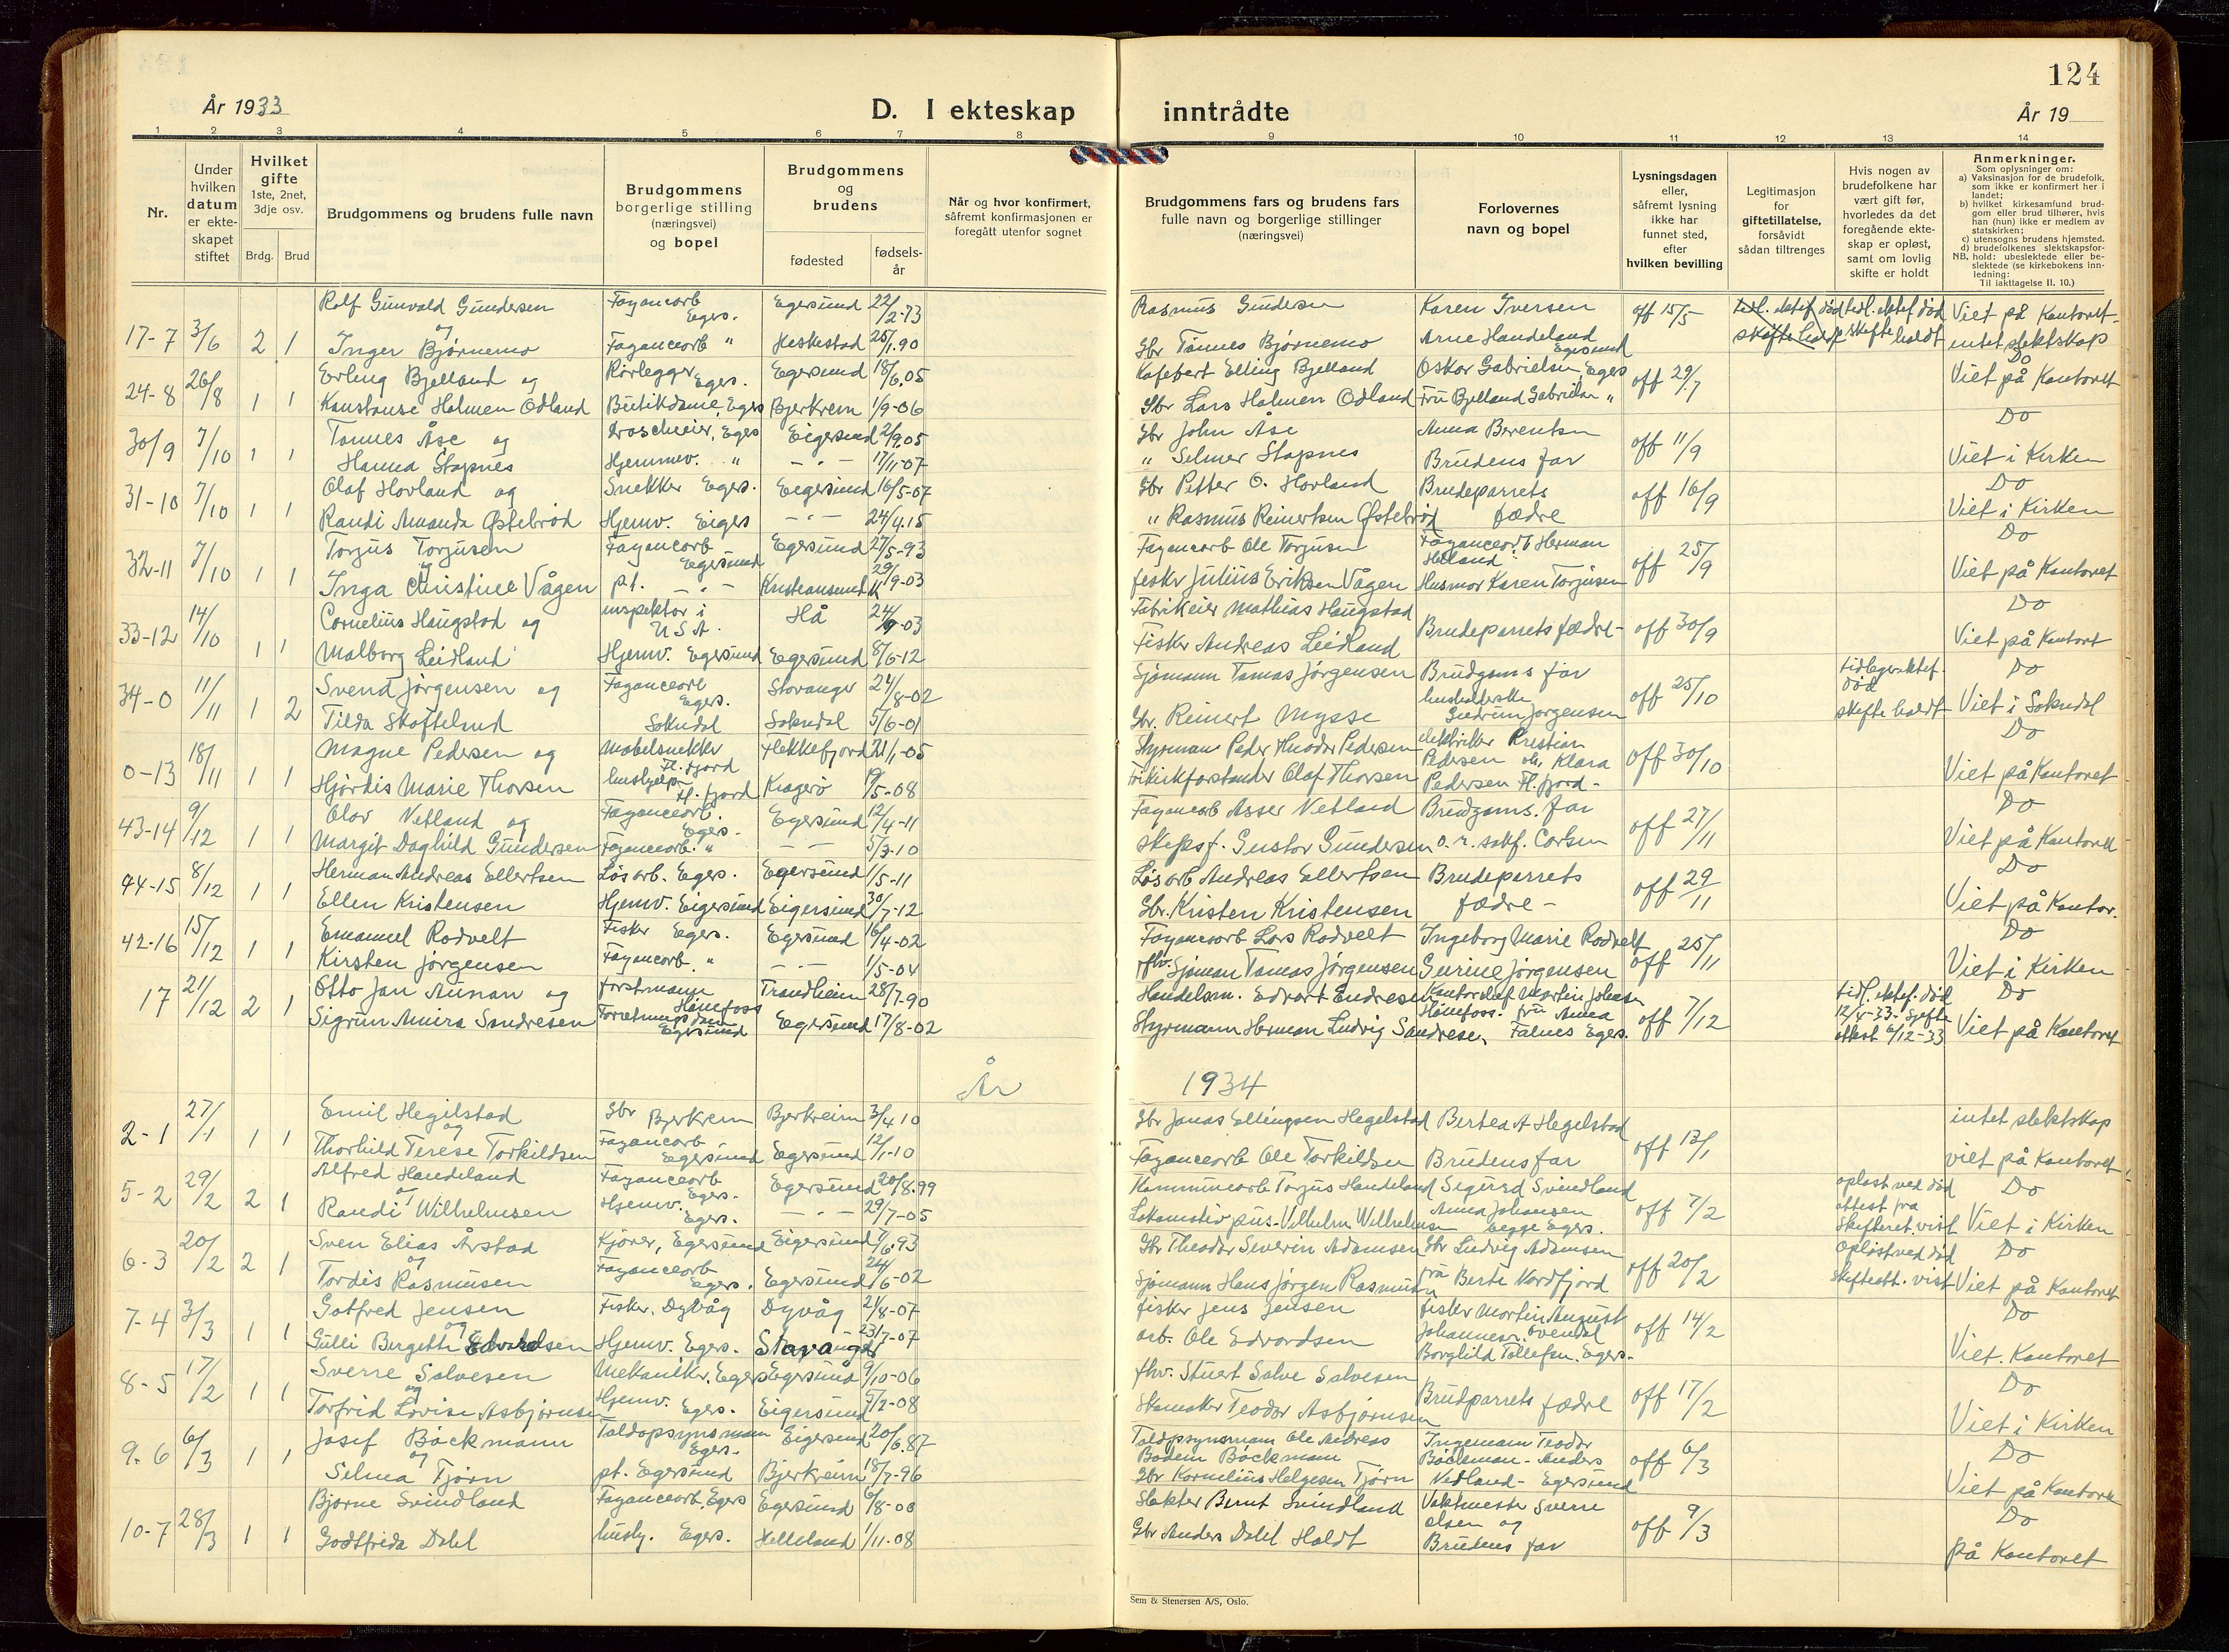 124
År 1933
D. I ekteskap inntrådte
År 19
1 2 3 4 5 6 7 8 9 10 11 12 13 14
Nr.
Under hvilken datum er ekteskapet stiftet
Hvilket gifte 1ste, 2net, 3dje osv.
Brdg. Brud
Brudgommens og brudens fulle navn
Brudgommens borgerlige stilling (næringsvei) og bopel
Brudgommens og brudens
fødested
fødsels-år
Når og hvor konfirmert, såfremt konfirmasjonen er foregått utenfor sognet
Brudgommens fars og brudens fars fulle navn og borgerlige stillinger (næringsvei)
Forlovernes navn og bopel
Lysningsdagen eller, såfremt lysning ikke har funnet sted, efter hvilken bevilling
Legitimasjon for giftetillatelse, forsåvidt sådan tiltrenges
Hvis nogen av brudefolkene har vært gift før, hvorledes da det foregående ekteskap er opløst, samt om lovlig skifte er holdt
Anmerkninger.
Som oplysninger om:
a) Vaksinasjon for de brudefolk, som ikke er konfirmert her i landet;
b) hvilket kirkesamfund brudgom eller brud tilhører, hvis han (hun) ikke er medlem av statskirken;
c) utensogns brudens hjemsted.
d) brudefolkenes slektskapsforhold: ubeslektede eller beslektede (se kirkebokens innledning:
NB.
Til iakttagelse II. 10.)
17-7 3/6 2 1 Rolf Gunvald Gundersen og Fayancearb Eges. Egersund 22/2-73 Rasmus Gundersen Karen Iversen off 15/5 tidl. ektef død skifte holdt Viet på Kontoret
Inger Bjørnemo Fayancearb " Heskestad 25/1.90 Gbr Tønnes Bjørnemo Arne Handeland Egersund intet slektskap
24-8 26/8 1 1 Erling Bjelland og Rørlegger Egers. Egersund 18/6.05 Kafevert Elling Bjelland Oskar Gabrielsen, Egers off 29/7 Do Viet på Kontoret
Konstanse Holmen Ødland Butikdame, Egers Bjerkrem 1/9-06 Gbr Lars Holmen Ødland Fru Bjelland Gabrielsen " Do
30/9 7/10 1 1 Tønnes Åse og Droscheeier, Egers Eigersund 2/9.05 Gbr John Åse Anna Berentsen off 11/9
Hanna Stapnes Hjemmev. " - " - 17/11-07 " Selmer Stapnes Brudens far Viet i Kirken
31-10 7/10 1 1 Olaf Hovland og Snekker Egers. Eigersund 16/5-07 Gbr Petter O. Hovland Brudeparrets off 16/9 Do
Randi Amanda Østebrød Hjemv. Eigers - " - 24/4.15 " Rasmus Reinertsen Østebrød fædre Viet i Kirken
32-11 7/10 1 1 Torjus Torjusen og Fayancearb Egersund Egersund 27/5-93 Fayancearb Ole Torjusen Fayancearb Herman Helland off 25/9 Do
Inga Christine Vågen p.t. - " - Kristiansund K 29/9-03 fisker Julius Eriksen Vågen Husmor Karen Torjusen Viet på Kontoret
33-12 14/10 1 1 Cornelius Haugstad og inspektør i USA. Hå 24/9-03 Fabrikeier Mathias Haugstad Brudeparrets fædre off 30/9 Do
Malborg Leidland Hjemv. Egersund Egersund 8/6-12 Fisker Andreas Leidland Viet på Kontoret
34-0 11/11 1 2 Svend Jørgensen og Fayancearb Egers. Stavanger 24/8-02 Sjømann Tomas Jørgensen Brudgoms far off 25/10 tidligere ektef. død Do
Tilda Skoftelund Sokndal Sokndal 5/6-01 Gbr. Reinert Mysse husholderske Gudrun Jørgensen skifte holdt Viet i Sokndal
0-13 18/11 1 1 Magne Pedersen og Møbelsnekker Fl. fjord Flekkefjord 21/1-05 Styrman Peder Theodor Pedersen elektriker Kristian Pedersen og Klara off 30/10 Do
Hjørdis Marie Thorsen hushjelp Fl. fjord Kragerø 19/5-08 Frikirkforstander Olaf Thorsen Pedersen Fl. fjord - Viet på Kontoret
43-14 9/12 1 1 Olav Netland og Fayancearb. Egers. Egersund 12/4-11 Fayancearb Asser Netland Brudgoms. far off 27/11 Do
Margit Daghild Gundersen Fayancearb. " - - 5/3-10 skipsf. Gustav Gundersen o.r. sakf. Corlsen Viet på Kontoret
44-15 8/12 1 1 Herman Andreas Ellertsen Løsarb. Egers. Egersund 1/5-11 Løsarb Andreas Ellertsen Brudeparrets off 29/11 Do
Ellen Kristensen Hjemv. Eigersund Eigersund 30/7-12 Gbr. Kristen Kristensen fædre - Viet på Kontor.
42-16 15/12 1 1 Emanuel Rodvelt Fisker Egers. Egersund 16/4-02 Fayancearb Lars Rodvelt Ingeborg Marie Rodvelt off 25/11 Do
Kirsten Jørgensen Fayancearb " - " - 1/5-04 fhv. Sjøman Tomas Jørgensen Gurine Jørgensen Viet i Kirken
17 21/12 2 1 Otto Jan Aunan og forstmann Hønefoss Trondheim 28/7-90 Handelsm. Edvart Endresen Kontorchef Martin Johnsen Hønefoss. fru Anna off 7/12 tidl. ektef. død 12/4-33. Skifte Do
Sigrun Amira Sandresen Forretningsdame Egersund Egersund 17/8-02 Styrmann Herman Ludvig Sandresen Falnes Egers. attest 6/12-33 Viet på Kontoret
År 1934
2-1 27/1 1 1 Emil Hegelstad og Gbr Bjerkrem Bjerkreim 3/4 10 Gbr Jonas Ellingsen Hegelstad Bertea A Hegelstad off 13/1 intet slektskap
Thorhild Terese Torkildsen Fayancearb Egersund Egersund 12/1-10 Fayancearb Ole Torkildsen Brudens far viet på Kontoret
5-2 29/2 2 1 Alfred Handeland og Fayancearb Egers. Egersund 20/8.99 Kommunearb Torjus Handeland Sigurd Svindland off 7/2 opløst ved død attest fra Do
Randi Wilhelmsen Hjemv. Egers. - " - 29/7-05 Lokomotiv pus. Vilhelm Wilhelmsen Anna Johansen begge Egers. Skifteret. vist Viet i Kirken
6-3 20/2 2 1 Sven Elias Årstad og Kjører, Egersund Eigersund 9/6.93 Gbr Theodor Severin Adamsen Gbr Ludvig Adamsen off 20/2 Opløst ved død Do
Tordis Rasmusen Fayancearb Egers. Egersund 24/6-02 Sjømann Hans Jørgen Rasmusen fru Berte Nordfjord skifteatt. vist Viet på Kontoret
7-4 3/3 1 1 Gotfred Jensen og Fisker. Dyvåg Dyvåg 21/8-07 fisker Jens Jensen fisker Martin August Johannesen. off 14/2 Do
Gulli Bergette Edvardsen Hjemv. Egers. Stavanger 23/7-07 arb. Ole Edvardsen Borghild Tollefsen. Egers. Viet. Kontoret
8-5 17/2 1 1 Sverre Salvesen og Mekaniker. Egers Egersund 9/10-06 fhv. Stuert Salve Salvesen Brudparrets fædre off 17/2 Do
Torfrid Lovise Asbjørnsen Hjemv. Egers. Eigersund 5/2-08 Skomaker Teodor Asbjørnsen Viet i Kirken
9.6 6/3 1 1 Josif Bøckmann og Toldopsynsmann Egers. Eigersund 20/6.87 Toldopsynsmann Ole Andreas Bodem Bøckmann Ingemann Teodor Bøckman - Anders off 6/3 Do
Selma Tjørn pt. Egersund Bjerkreim 18/7-96 Gbr Kornelius Helgesen Tjørn Nedland - Egersund Viet på Kontoret
10-7 28/3 1 1 Bjarne Svindland Fayancearb, Egers Egersund 6/8-08 Slakter Bernt Svindland Vaktmester Sverre Olsen og off 9/3 Do
Godtfrida Dalel hush. Egers. Helleland 1/11-08 Gbr Anders Dalel Holdt Brudens far på Kontoret
Sem & Stenersen A/S, Oslo.